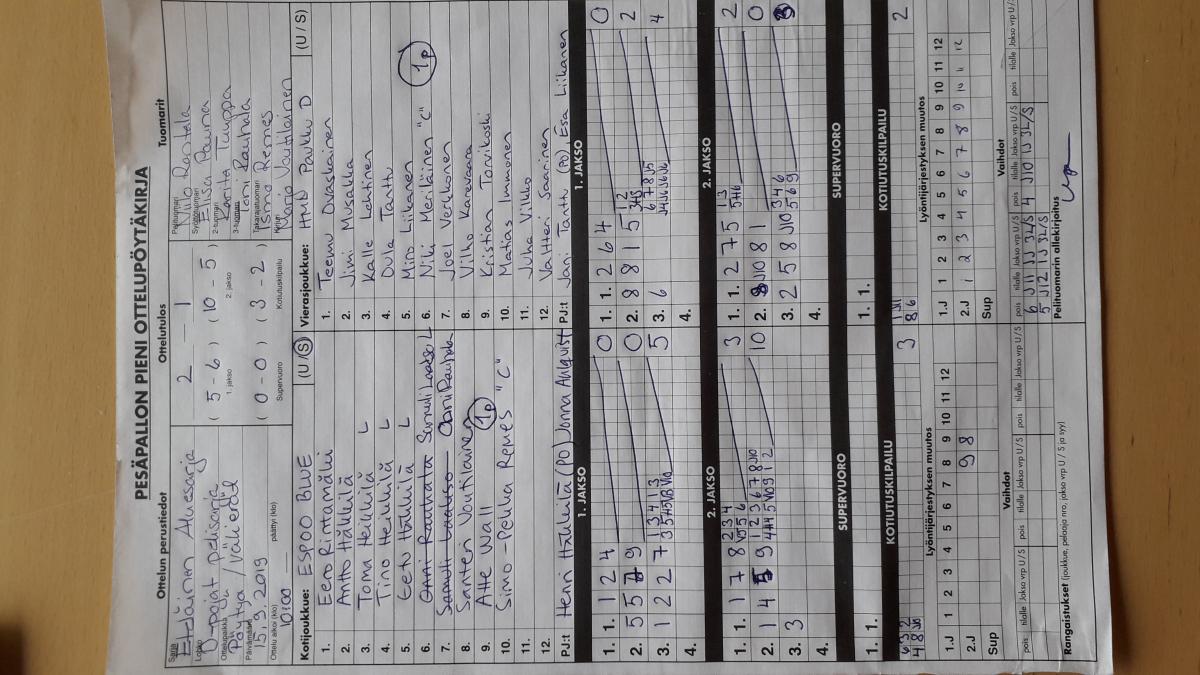 PESÄPALLON PIENI OTTELUPÖYTÄKIRJA
Ottelun perustiedot
Sarja
Eteläinen Aluesarja
Lohko
D-pojat pelisarja
Ottelupaikka
Pöytyä / Väkerae
Päivämäärä
15.9.2019
Ottelu alkoi (klo)
10:00
päättyi (klo)
Ottelutulos
2 — 1
( 5 - 6 ) ( 10 - 5 )
1. jakso 2. jakso
( 0 - 0 ) ( 3 - 2 )
Supervuoro Kotiutuskilpailu
Tuomarit
Pelituomari
Niilo Rantala
Syöttötuomari
Elisa Rauna
2-tuomari
Karita Tuuppa
3-tuomari
Toni Rauhala
Takarajatuomari
Simo Remes
Kirjuri
Marjo Voutilainen
Kotijoukkue: ESPOO BLUE (U / S)
1. Eero Rintamäki
2. Antto Häkkilä
3. Toma Heikkilä L
4. Tino Heikkilä L
5. Eetu Häkkilä L
6. Oani Rauhala Samuli Laakso L
7. Samuli Laakso Oani Rauhala
8. Santeri Voutilainen
9. Atte Wall 1p
10. Simo-Pekka Remes "C"
11.
12.
PJ:t Henri Häkkilä (PO) Jonna Ahlquist
Vierasjoukkue: HMD Pauku D (U / S)
1. Teemu Ovaskainen
2. Jimi Musakka
3. Kalle Lehtinen
4. Ovle Tanttu
5. Mino Liikanen
6. Niki Meriläinen "C" 1p
7. Joel Verkkonen
8. Vilho Karevaara
9. Kristian Torvikoski
10. Matias Immonen
11. Juho Vilko
12. Valtteri Saarinen
PJ:t Jani Tanttu (PO), Esa Liikanen
1. JAKSO
1. 1. 1 2 4 0
2. 5 5 7 9 0
3. 1 2 2 7 5
4.
1. JAKSO
1. 1. 2 6 4 0
2. 8 8 1 5 2
3. 6 4
4.
2. JAKSO
1. 1. 1 7 8 3
2. 1 4 5 9 10
3. 3
4.
2. JAKSO
1. 1. 2 7 5 2
2. 8 J10 8 1 0
3. 2 5 8 J10 3
4.
SUPERVUORO
1. 1.
SUPERVUORO
1. 1.
KOTIUTUSKILPAILU
6 3 2 3
4 8 J6
KOTIUTUSKILPAILU
1 J11 2
8 6
Lyöntijärjestyksen muutos
1.J 1 2 3 4 5 6 7 8 9 10 11 12
2.J 9 8
Sup
Lyöntijärjestyksen muutos
1.J 1 2 3 4 5 6 7 8 9 10 11 12
2.J 1 2 3 4 5 6 7 8 9 10 11 12
Sup
Vaihdot
pois tilalle Jakso vrp U / S pois tilalle Jakso vrp U / S
Vaihdot
pois tilalle Jakso vrp U / S pois tilalle Jakso vrp U / S
6 J11 1 3 L/S 4 J10 1 3 L/S
5 J12 1 3 L/S
Rangaistukset (joukkue, pelaaja nro, jakso vrp U / S ja syy)
Pelituomarin allekirjoitus